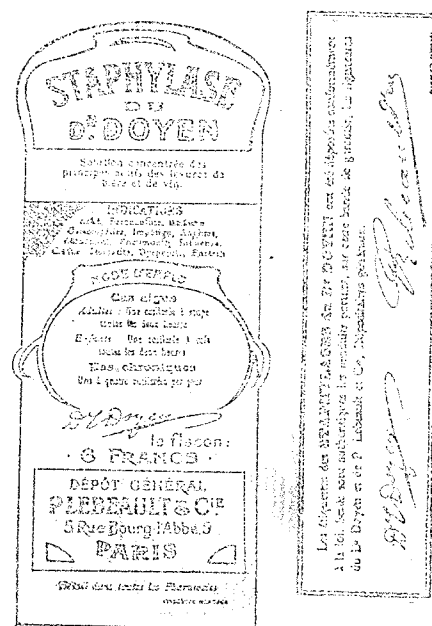 STAPHYLASE
DU
Dr DOYEN
Solution concentrée des
principes actifs des levures de
bière et de vin.
INDICATIONS
MODE D'EMPLOI
Cas aigus
Adultes : Une cuillerée à soupe
toutes les deux heures
Enfants : Une cuillerée à café
toutes les deux heures
Cas chroniques
Une à quatre cuillerées par jour
Dr Doyen
le flacon:
6 FRANCS
DÉPÔT GÉNÉRAL
P. LEBEAULT & Cie
5 Rue Bourg-l'Abbé, 5
PARIS
Détail dans toutes les Pharmacies
Les étiquettes des STAPHYLASES du Dr DOYEN ont été déposées conformément
à la loi, seuls sont authentiques les produits portant, sur cette bande de garantie, les signatures
du Dr Doyen et de P. Lebeault et Co, Dépositaires généraux.
Dr Doyen